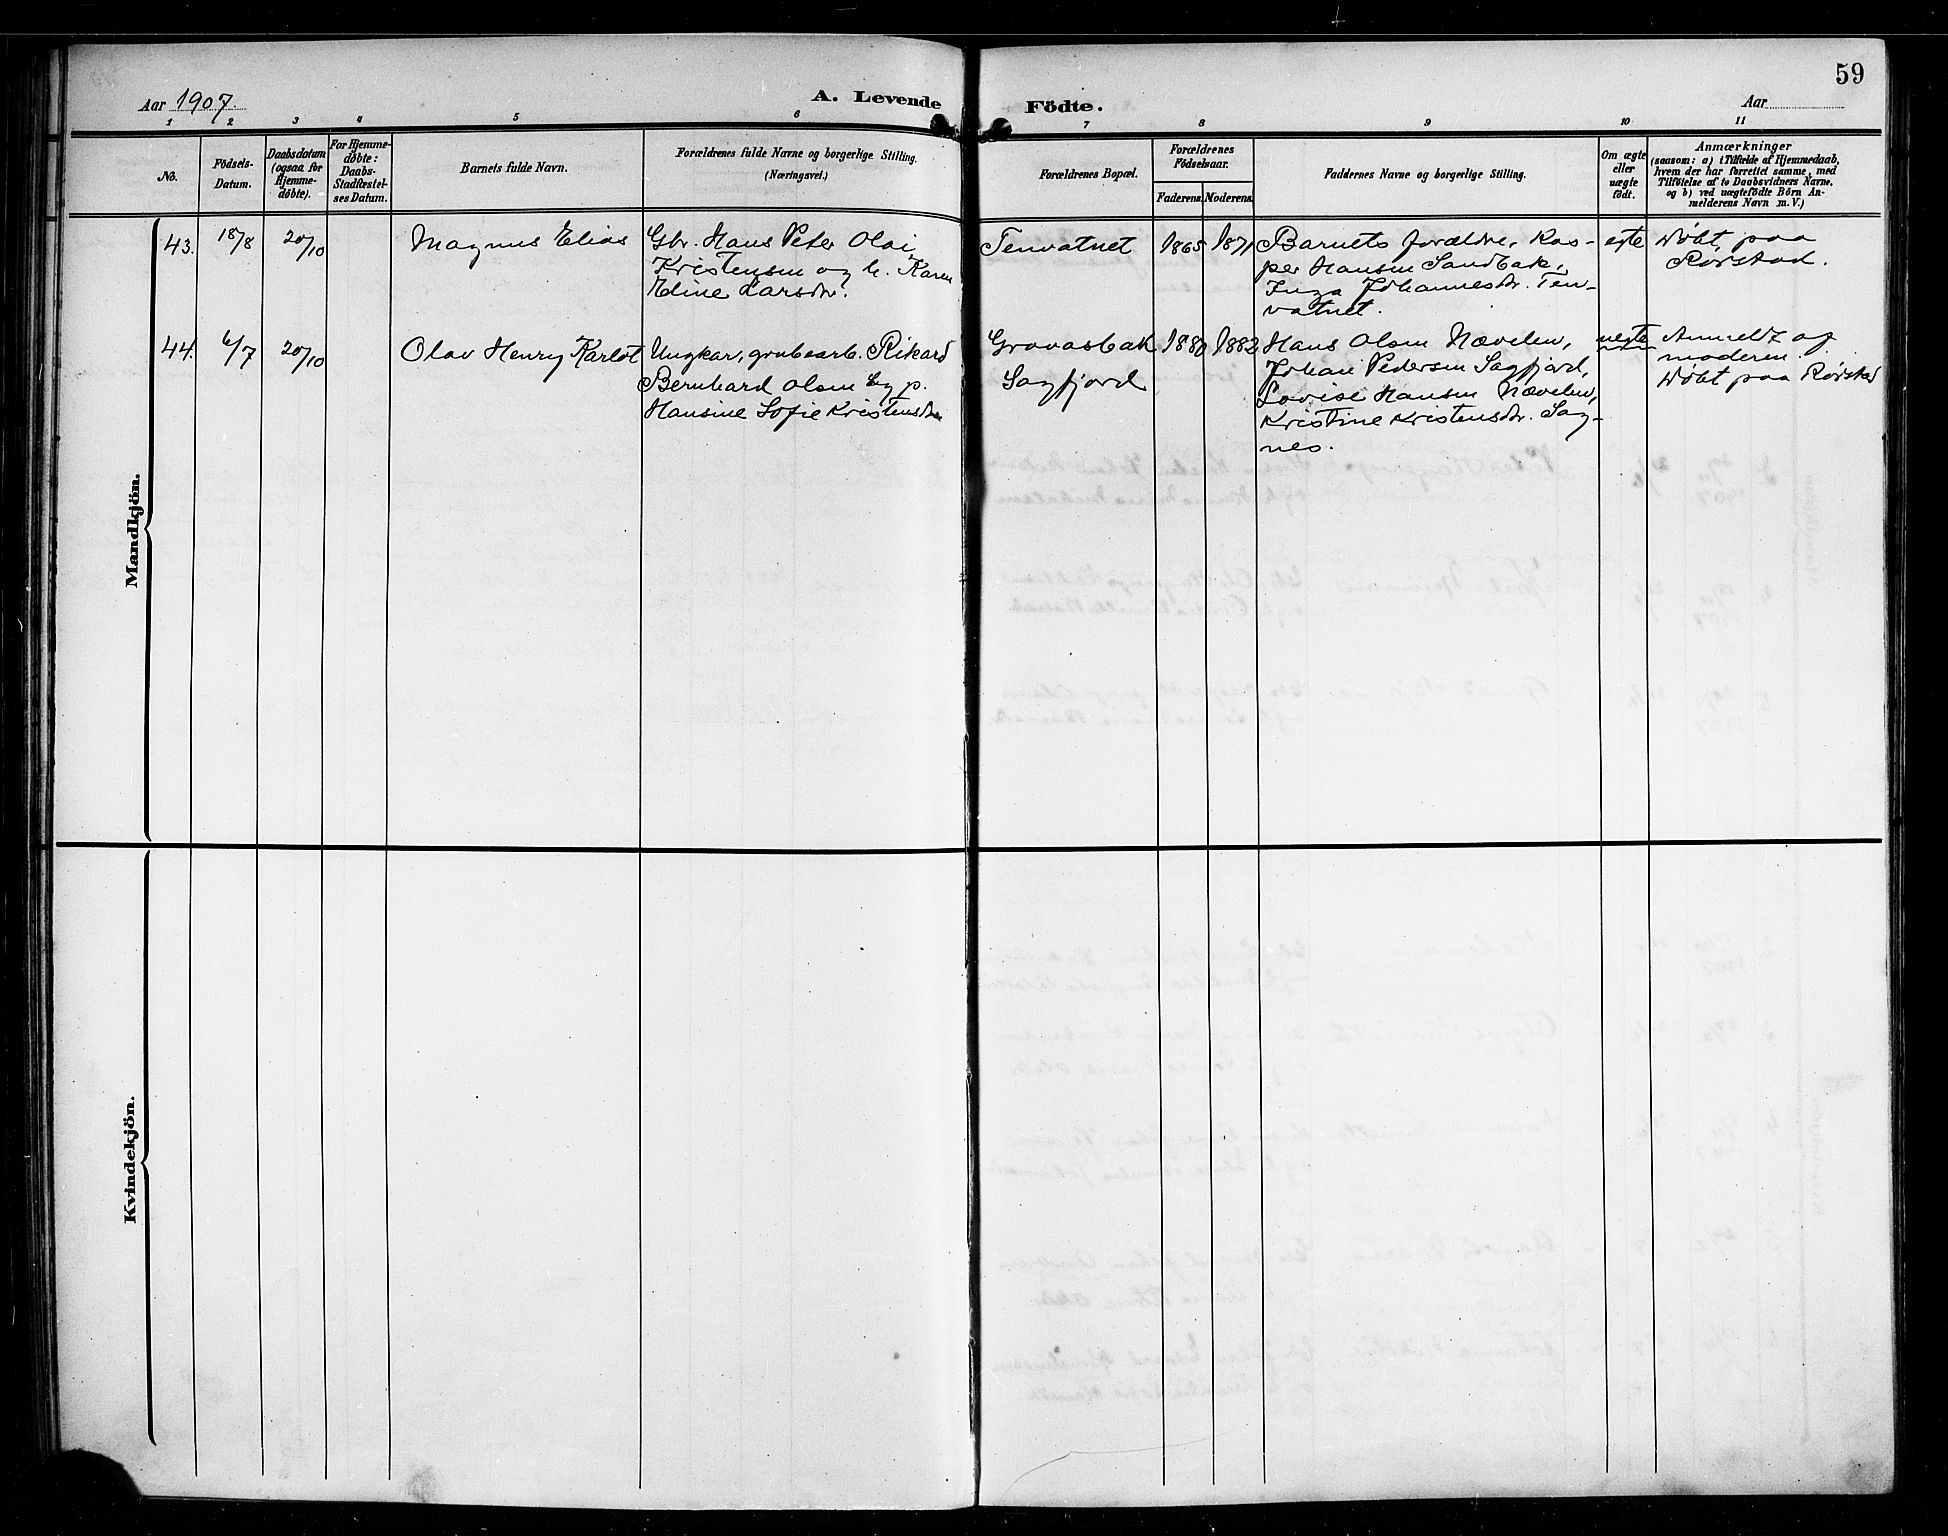 59
Aar 1907.
A. Levende
Födte.
Aar
1 2 3 4 5 6 7 8 9 10 11
No.
Födsels-
Datum.
Daabsdatum
(ogsaa for
Hjemme-
döbte).
For Hjemme-
döbte:
Daabs-
Stadfæstel-
ses Datum.
Barnets fulde Navn.
Forældrenes fulde Navne og borgerlige Stilling.
(Næringsvei.)
Forældrenes Bopæl.
Forældrenes
Födselsaar.
Faderens.
Moderens.
Faddernes Navne og borgerlige Stilling.
Om ægte
eller
uægte
födt.
Anmærkninger
(saasom: a) i Tilfælde af Hjemmedaab,
hvem der har forrettet samme, med
Tilföielse af to Daabsvidners Navne,
og b) ved uægtefödte Börn An-
melderens Navn m. V.)
Mandkjön.
43.
18/8
20/10
Magnus Elias
Gbr. Hans Peter Olai
Kristensen og h. Karen
Eline Larsdtr.
Tenvatnet
1865
1871
Barnets forældre, Kas-
per Hansen Sandbak,
Inga Johannesdtr. Ten-
vatnet.
egte
Døbt paa
Rørstad.
44.
6/7
20/10
Olav Henry Karlot
Ungkar, grubearb. Rikard
Bernhard Olsen og p.
Hansine Sofie Kristensdtr
Grovasbak
Sagfjord
1880
1882
Hans Olsen Nævelen,
Johan Pedersen Sagfjord,
Lovise Hansen Nævelen,
Kristine Kristensdtr. Sag-
nes.
uegte
Anmeldt af
moderen.
Døbt paa Rørstad
Kvindekjön.